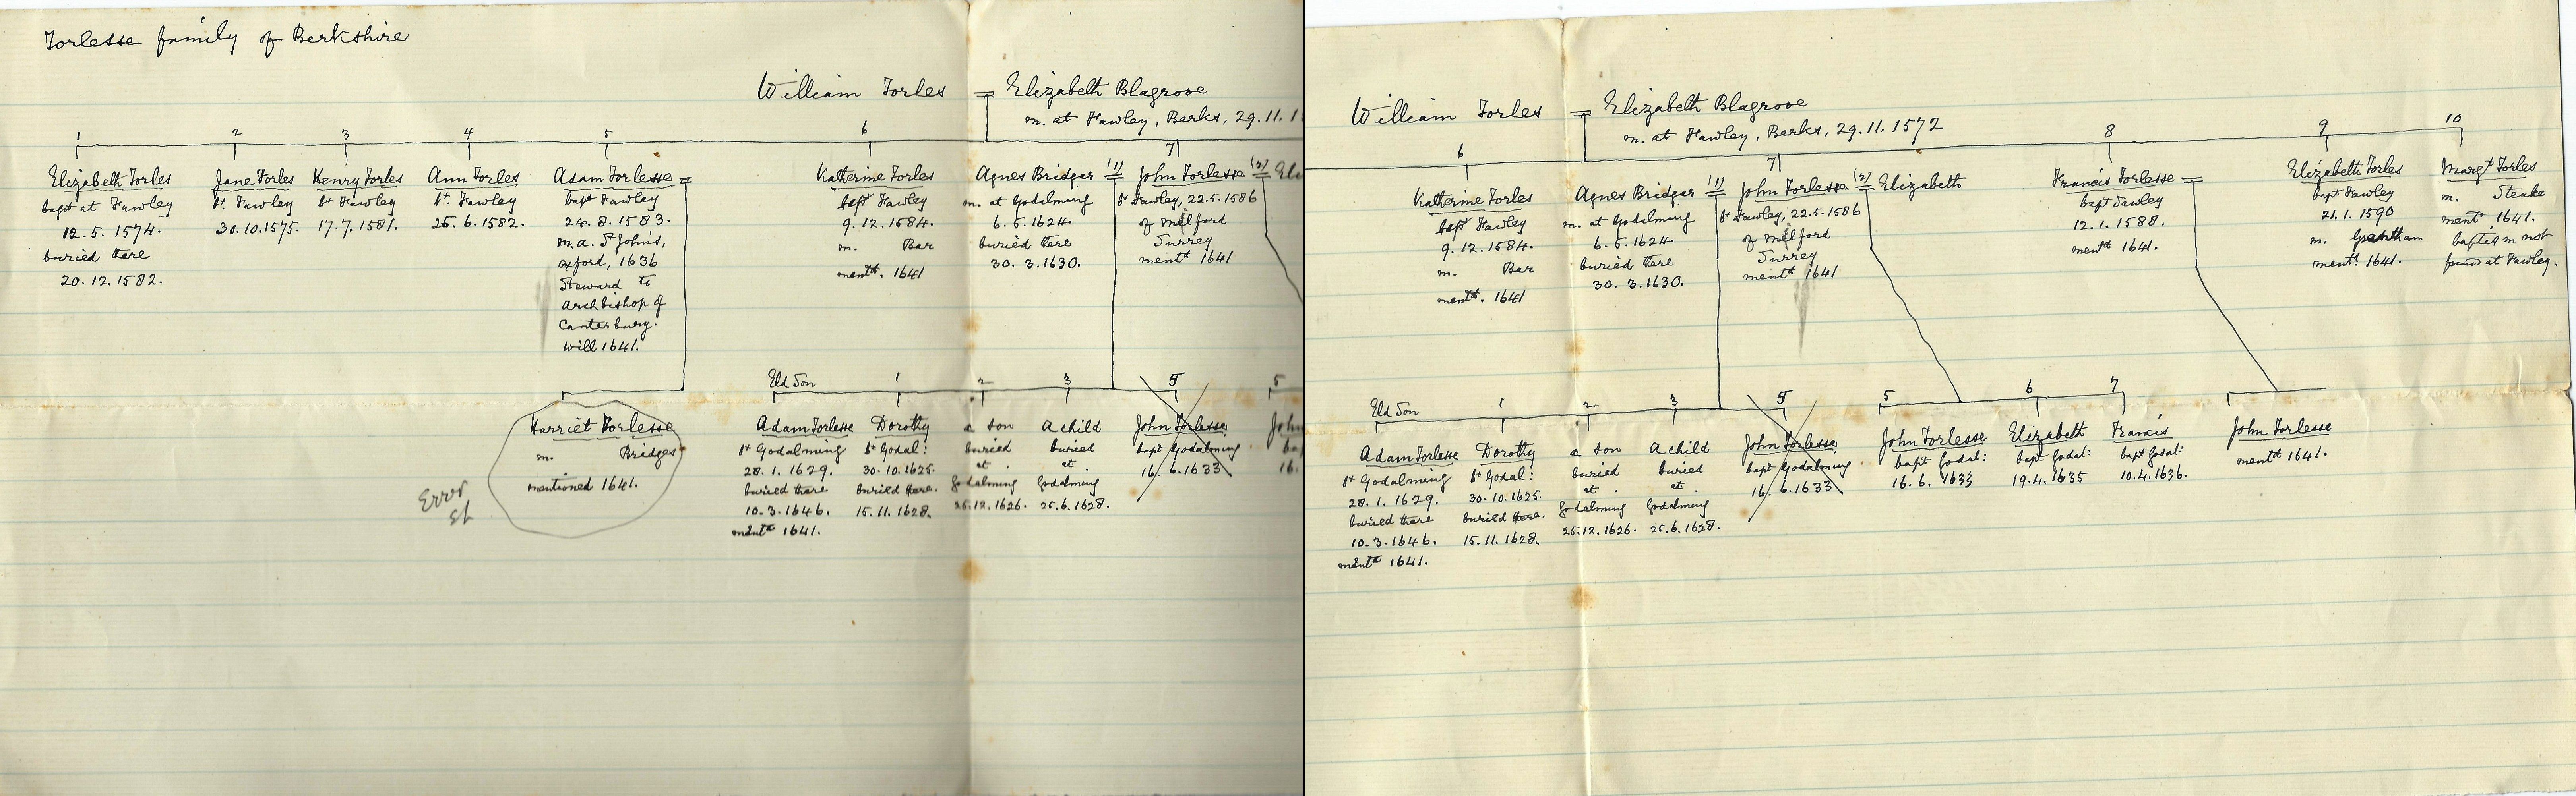 Torlesse family of Berkshire
William Torles = Elizabeth Blagrove
m. at Fawley, Berks, 29.11.1
1 2 3 4 5 6 7
Elizabeth Torles
bapt at Fawley
12.5.1574.
buried there
20.12.1582.
Jane Torles
bt. Fawley
30.10.1575.
Henry Torles
bt Fawley
17.7.1581.
Ann Torles
bt. Fawley
25.6.1582.
Adam Torlesse =
bapt Fawley
24.8.1583.
M.A. St John's,
Oxford, 1636
Steward to
Archbishop of
Canterbury.
Will 1641.
Katherine Torles
bapt Fawley
9.12.1584.
m. Bar
mentd. 1641
Agnes Bridger (1) =
m. at Godalming
6.5.1624.
buried there
30.3.1630.
John Torlesse (2) = Eli
bt Fawley, 22.5.1586
of Milford
Surrey
mentd 1641
Harriet Torlesse
m. Bridges
mentioned 1641.
Error
Eld Son 1 2 3 5 5
Adam Torlesse
bt Godalming
28.1.1629.
buried there
10.3.1646.
mentd 1641.
Dorothy
bt Godal:
30.10.1625.
buried there.
15.11.1628.
a son
buried
at
Godalming
25.12.1626.
A child
buried
at
Godalming
25.6.1628.
John Torlesse
bapt Godalming
16.6.1633
John
bap
16.
William Torles = Elizabeth Blagrove
m. at Fawley, Berks, 29.11.1572
6 7 8 9 10
Katherine Torles
bapt Fawley
9.12.1584.
m. Bar
mentd. 1641
Agnes Bridger (1) =
m. at Godalming
6.5.1624.
buried there
30.3.1630.
John Torlesse (2) = Elizabeth
bt Fawley, 22.5.1586
of Milford
Surrey
mentd 1641
Francis Torlesse =
bapt Fawley
12.1.1588.
mentd 1641.
Elizabeth Torles
bapt Fawley
21.1.1590
m.
mentd. 1641.
Margt Torles
m. Steake
mentd 1641.
baptism not
found at Fawley.
Eld Son 1 2 3 5 5 6 7
Adam Torlesse
bt Godalming
28.1.1629.
buried there
10.3.1646.
mentd 1641.
Dorothy
bt Godal:
30.10.1625.
buried there.
15.11.1628.
a son
buried
at
Godalming
25.12.1626.
A child
buried
at
Godalming
25.6.1628.
John Torlesse
bapt Godalming
16.6.1633
John Torlesse
bapt Godal:
16.6.1633
Elizabeth
bapt Godal:
19.4.1635
Francis
bapt Godal:
10.4.1636.
John Torlesse
mentd 1641.